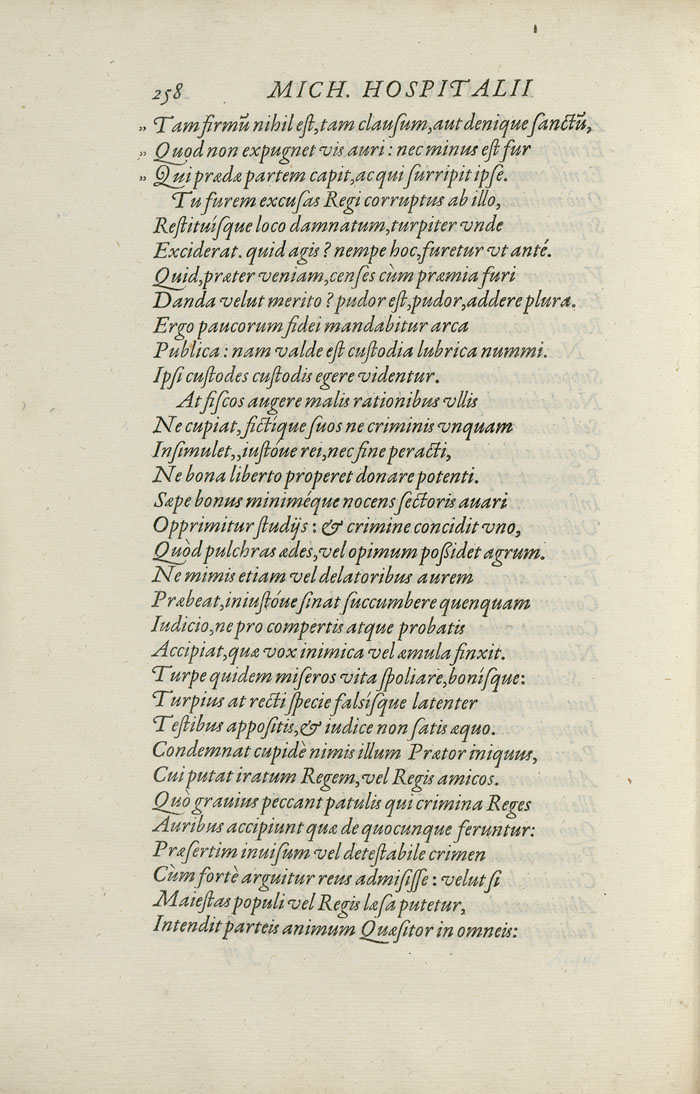 258 MICH. HOSPITALII
„ Tam firmū nihil eſt, tam clauſum, aut denique ſanctū,
„ Quod non expugnet vis auri : nec minus eſt fur
„ Qui prædæ partem capit, ac qui ſurripit ipſe.
Tu furem excuſas Regi corruptus ab illo,
Reſtituíſque loco damnatum, turpiter vnde
Exciderat. quid agis ? nempe hoc, furetur vt antè.
Quid, præter veniam, cenſes cùm præmia furi
Danda velut merito ? pudor eſt, pudor, addere plura.
Ergo paucorum fidei mandabitur arca
Publica : nam valde eſt cuſtodia lubrica nummi.
Ipſi cuſtodes cuſtodis egere videntur.
At fiſcos augere malis rationibus vllis
Ne cupiat, fictíque ſuos ne criminis vnquam
Inſimulet,, iuſtóue rei, nec fine peracti,
Ne bona liberto properet donare potenti.
Sæpe bonus miniméque nocens ſectoris auari
Opprimitur ſtudijs : & crimine concidit vno,
Quòd pulchras ædes, vel opimum poßidet agrum.
Ne mimis etiam vel delatoribus aurem
Præbeat, iniuſtóue ſinat ſuccumbere quenquam
Iudicio, ne pro compertis atque probatis
Accipiat, quæ vox inimica vel æmula finxit.
Turpe quidem miſeros vita ſpoliare, boníſque:
Turpius at recti ſpecie falsíſque latenter
Teſtibus appoſitis, & iudice non ſatis æquo.
Condemnat cupidè nimis illum Prætor iniquus,
Cui putat iratum Regem, vel Regis amicos.
Quò grauius peccant patulis qui crimina Reges
Auribus accipiunt quæ de quocunque feruntur:
Præſertim inuiſum vel deteſtabile crimen
Cùm fortè arguitur reus admiſiſſe : velut ſi
Maieſtas populi vel Regis læſa putetur,
Intendit parteis animum Quæſitor in omneis: